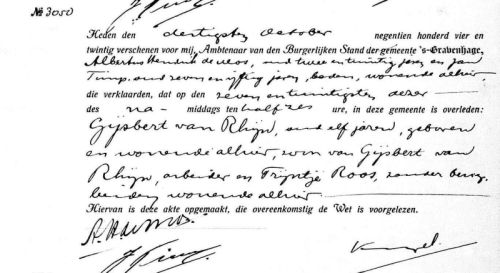 № 3050
Heden den dertigsten October negentien honderd vier en
twintig verschenen voor mij, Ambtenaar van den Burgerlijken Stand der gemeente 's-Gravenhage,
Albertus Hendrik de Vos, oud twee en twintig jaren en Jan
oud zeven en vijftig jaren, boden, wonende alhier,
die verklaarden, dat op den zeven en twintigsten dezer
des na- middags ten half zes ure, in deze gemeente is overleden:
Gijsbert van Rhijn, oud elf jaren, geboren
en wonende alhier, zoon van Gijsbert van
Rhijn, arbeider en Trijntje Roos, zonder beroep,
beiden wonende alhier
Hiervan is deze akte opgemaakt, die overeenkomstig de Wet is voorgelezen.